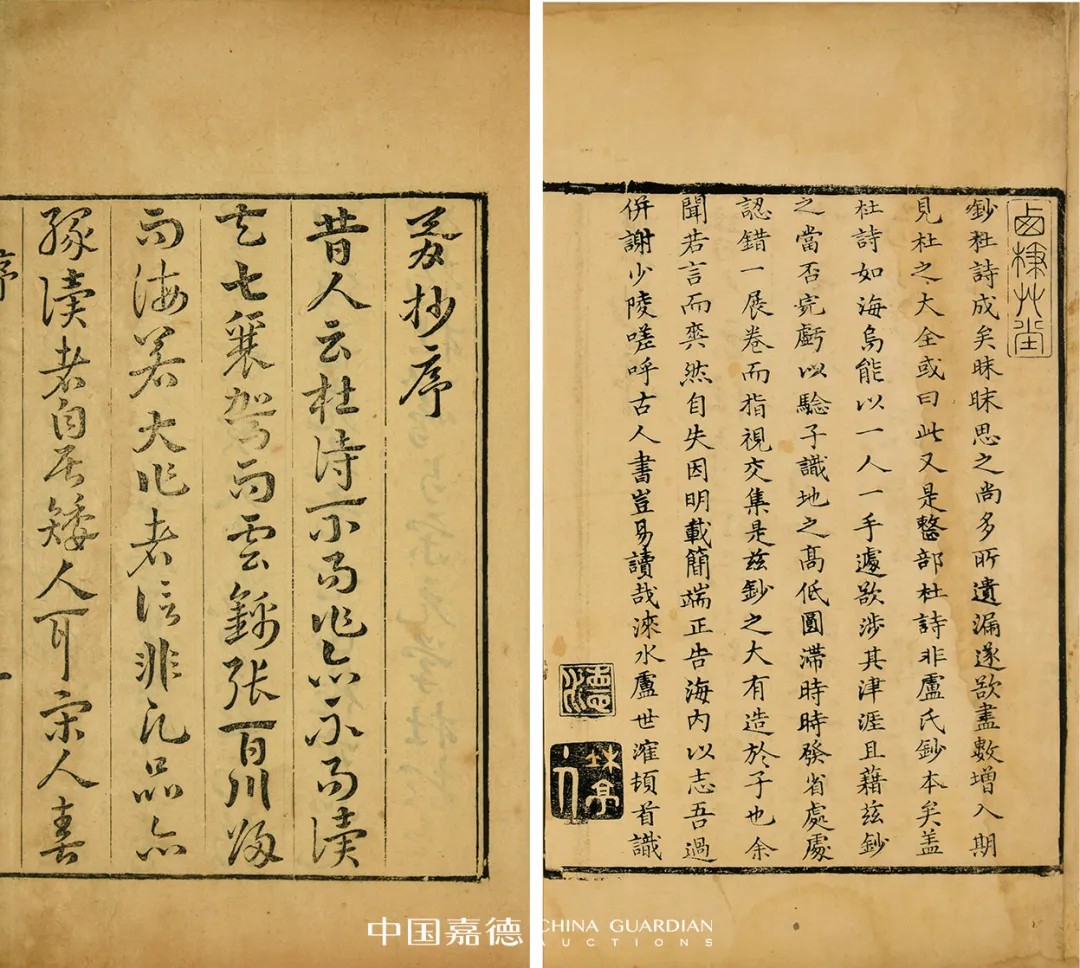 胥抄序
昔人云杜詩不易作亦不易讀
夫七襄駕而雲錦張百川歸
而海若大作者信非凡品亦
緣讀者自居矮人耳宋人喜
序
一
棣艸堂
鈔杜詩成矣昧昧思之尚多所遺漏遂欲盡數增入期
見杜之大全或曰此又是整部杜詩非盧氏鈔本矣盖
杜詩如海烏能以一人一手遽欲涉其津涯且藉茲鈔
之當否完虧以驗子識地之髙低圓滯時時發省處處
認錯一展卷而指視交集是茲鈔之大有造於子也余
聞若言而爽然自失因明載簡端正告海内以志吾過
併謝少陵嗟呼古人書豈易讀哉淶水盧世㴶頓首識
德水
杜亭
中国嘉德
CHINA GUARDIAN
AUCTIONS